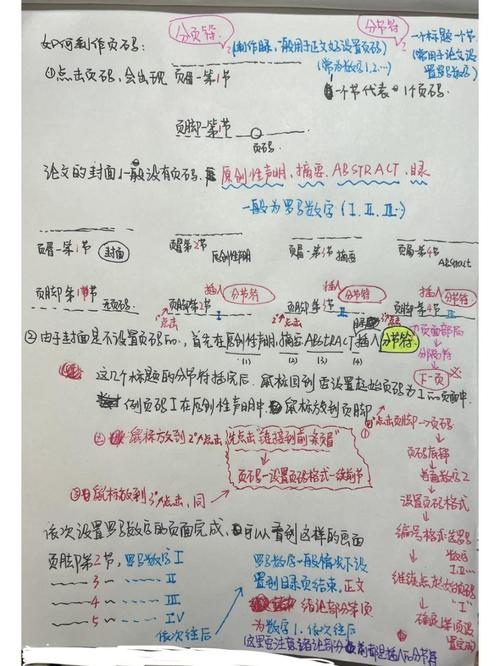 如何制作页码:
分页符
(制作目录,一般用于正文好设置页码)
(常为数码1.2…)
分节符
一个标题一个节
(常用于论文设置罗马数码)
①点击页码,会出现 页眉-第1节
一个节代表一个页码.
页脚-第1节
页码
论文的封面一般没有页码.
原创性声明、摘要、ABSTRACT、目录
一般为罗马数字(I.II.III…)
页眉-第1节 封面
页眉第2节 原创性声明
页眉-第3节 摘要
页眉-第4节 ABSTRACT
页脚第1节 无页码
插入 分节符
页脚第2节 I
插入 分节符
页脚第3节 II
插入 分节符
页脚第4节 III
1°点击
2°点击
②由于封面是不设置页码no,首先在原创性声明,摘要,ABSTRACT插入分节符
(1) (2) (3) (4)
页面布局
分隔符
下一页
这几个标题的分节符插完后,鼠标回到要设置起始页码为I no页面中.
例页码I在原创性声明中.鼠标放到页脚
1°点击页脚→页码
页码底部
普通数码2
设置页码格式
编号格式选罗马数码
I.II…
继续点起始页码
"I"
②鼠标放到2°点击,先点击"链接到前条页眉"
页码-设置页码格式-续前节
③鼠标放到3°点击,同
依次设置罗马数码的页面完成,可以看到这样的画面
页脚第2节,罗马数码I
3 II
4 III
5 IV
依次往后
罗马数码一般情况下设
置到目录页结束,正文
绪论部分单页
为数字1.依次往后
这里要注意绪论部分前都是插入no分节符